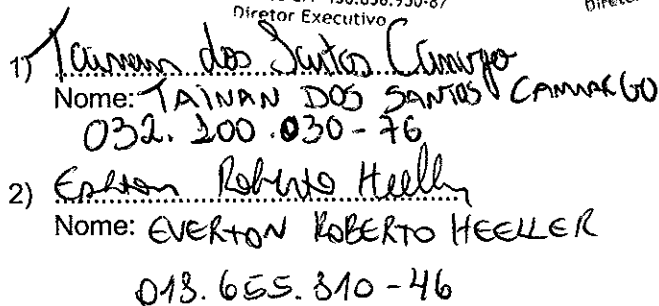 Diretor Executivo
1) Tainan dos Santos Camargo
Nome: TAINAN DOS SANTOS CAMARGO
032.200.030-76
2) Everton Roberto Heeller
Nome: EVERTON ROBERTO HEELLER
018.655.810-46